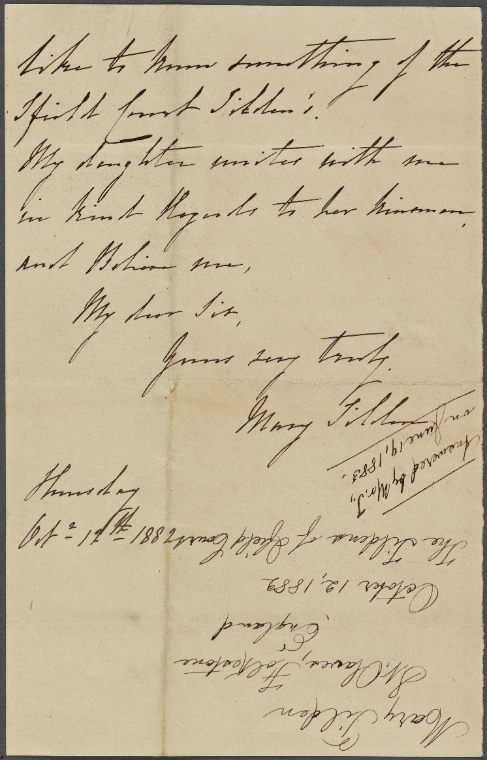 like to know something of the
Ifield Court Tilden's.
My daughter unites with me
in kind Regards to her kinsman,
and Believe me,
My dear Sir,
Yours very truly.
Mary Tilden
Thursday
Oct = 12th = 1882
Answered by Mr. T.,
on June 19, 1883.
Mary Tilden
St. Olaves, Folkestone
England
October 12, 1882
The Tildens of Ifield Court